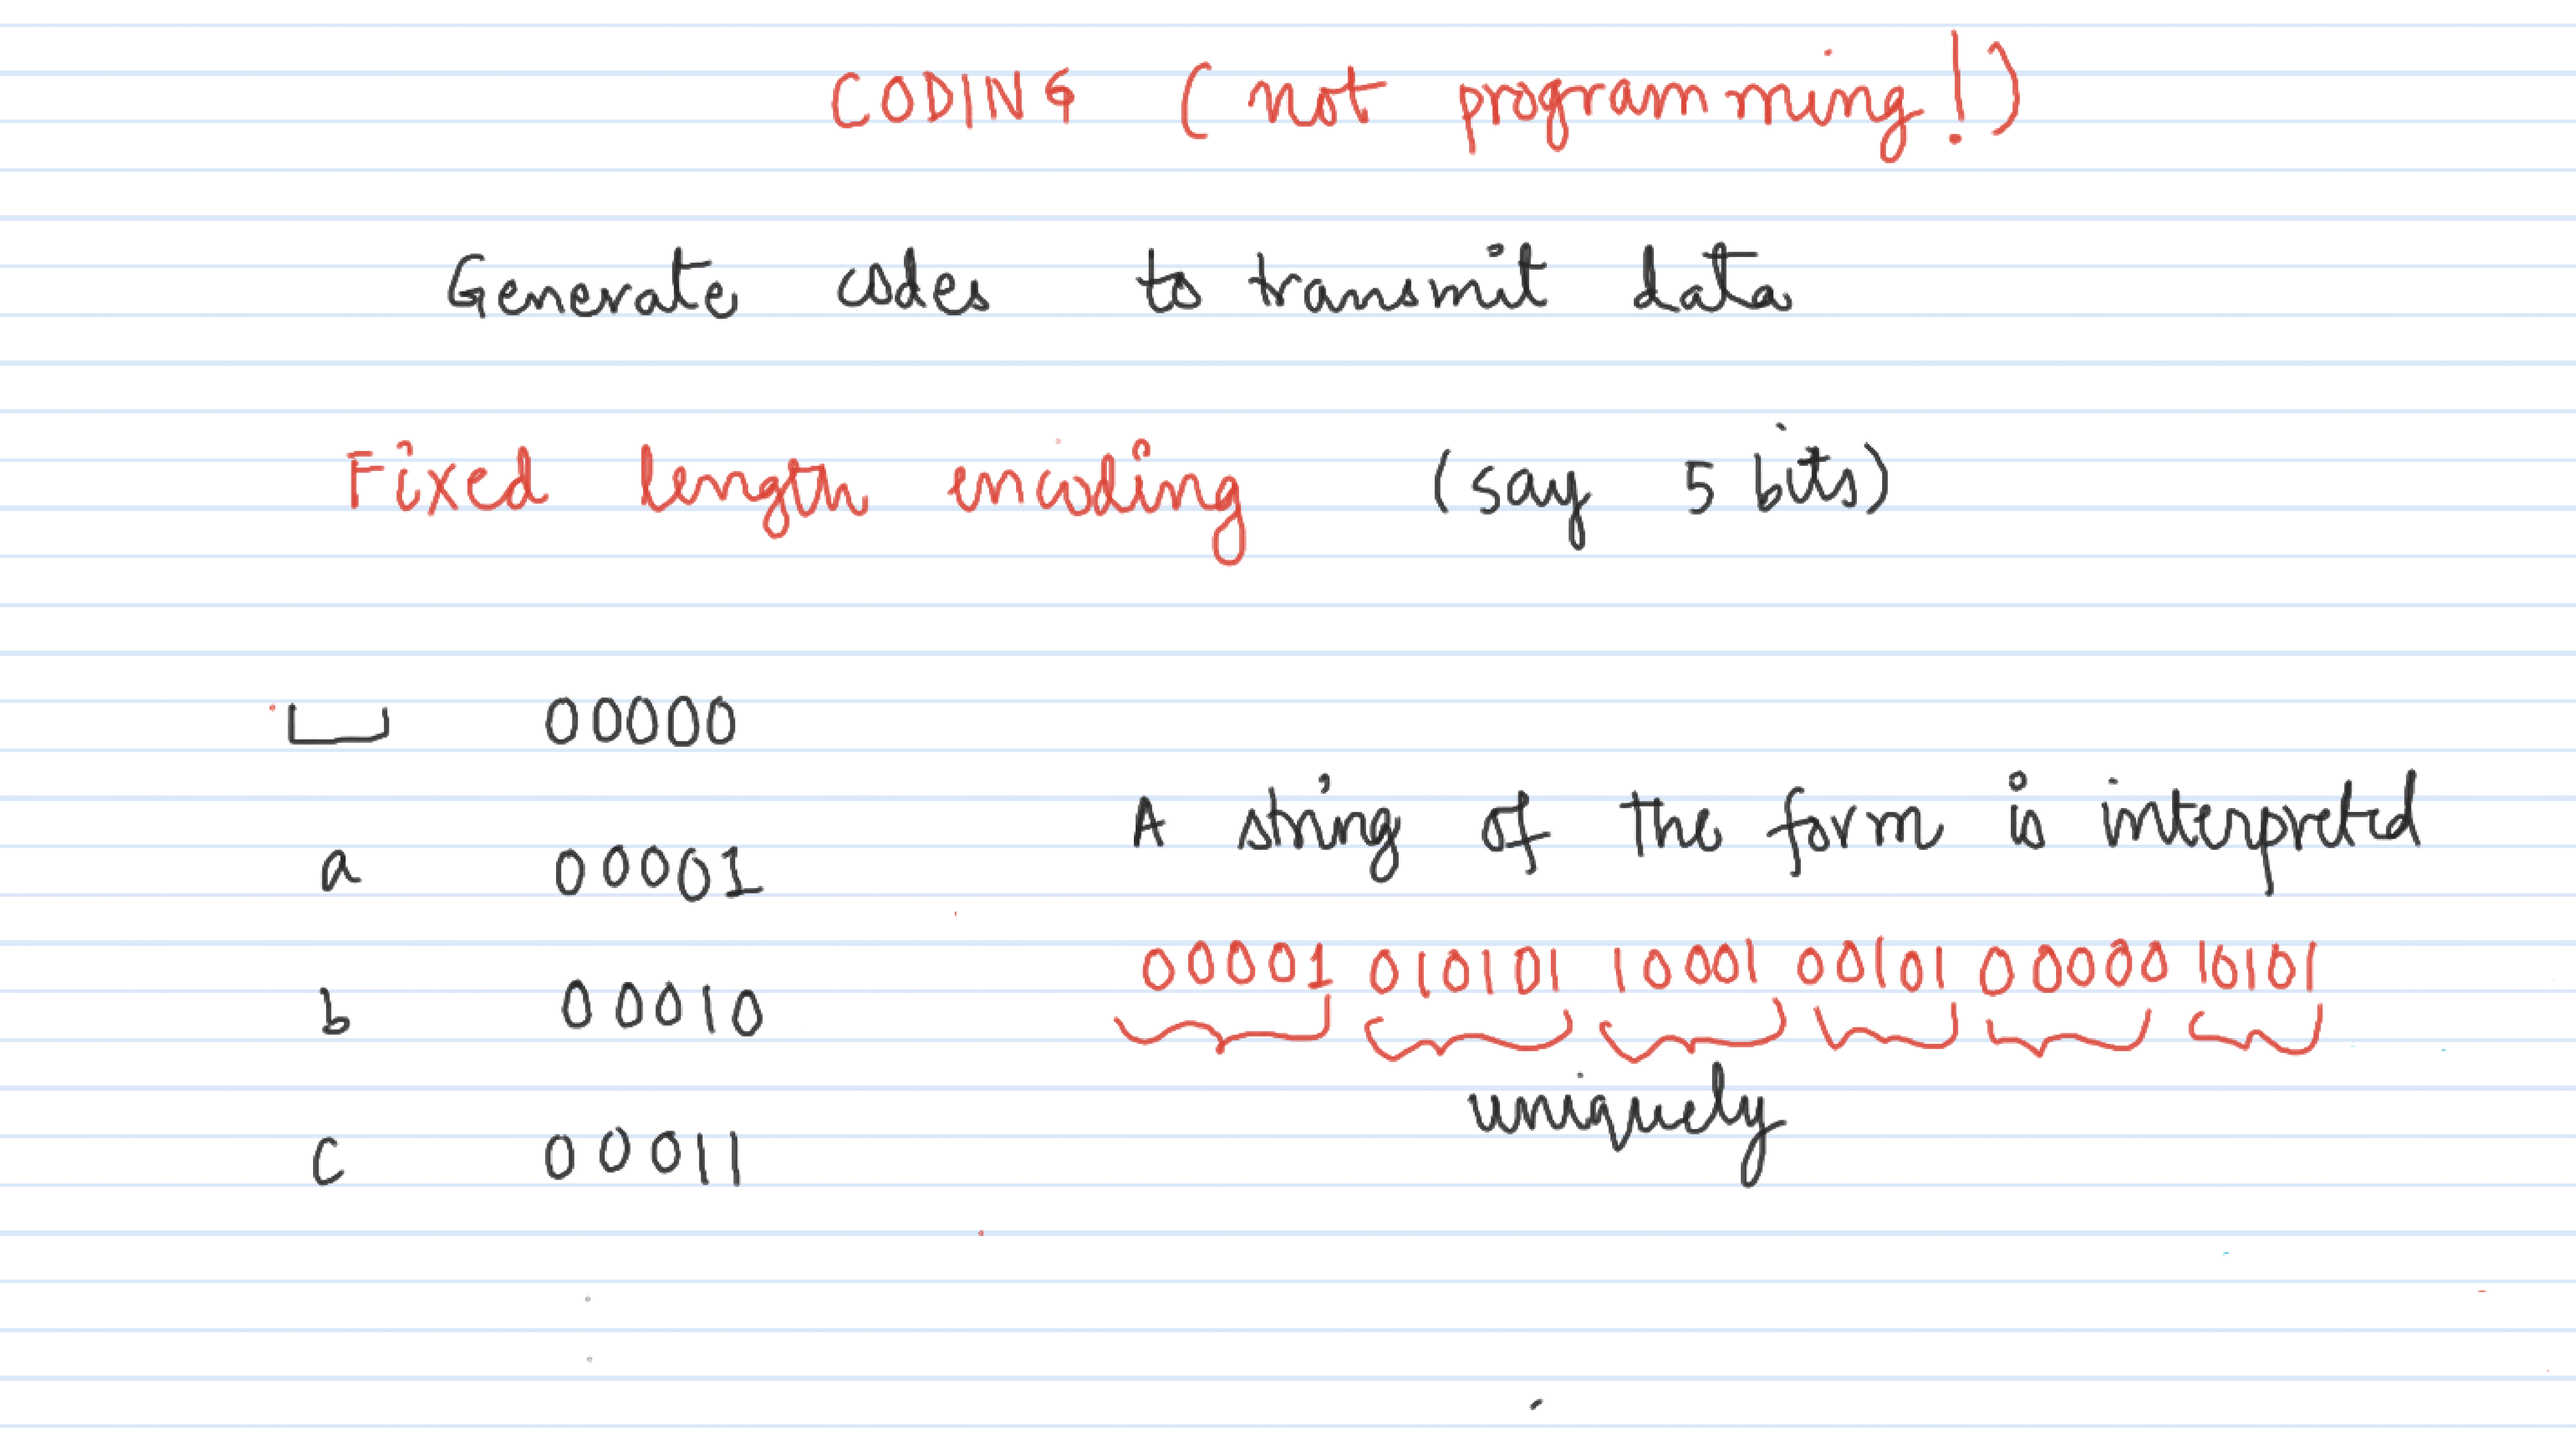 CODING (not programming!)
Generate codes to transmit data
Fixed length encoding (say 5 bits)
⌴ 00000
a 00001
A string of the form is interpreted
b 00010
00001 010101 10001 00101 00000 10101
uniquely
c 00011